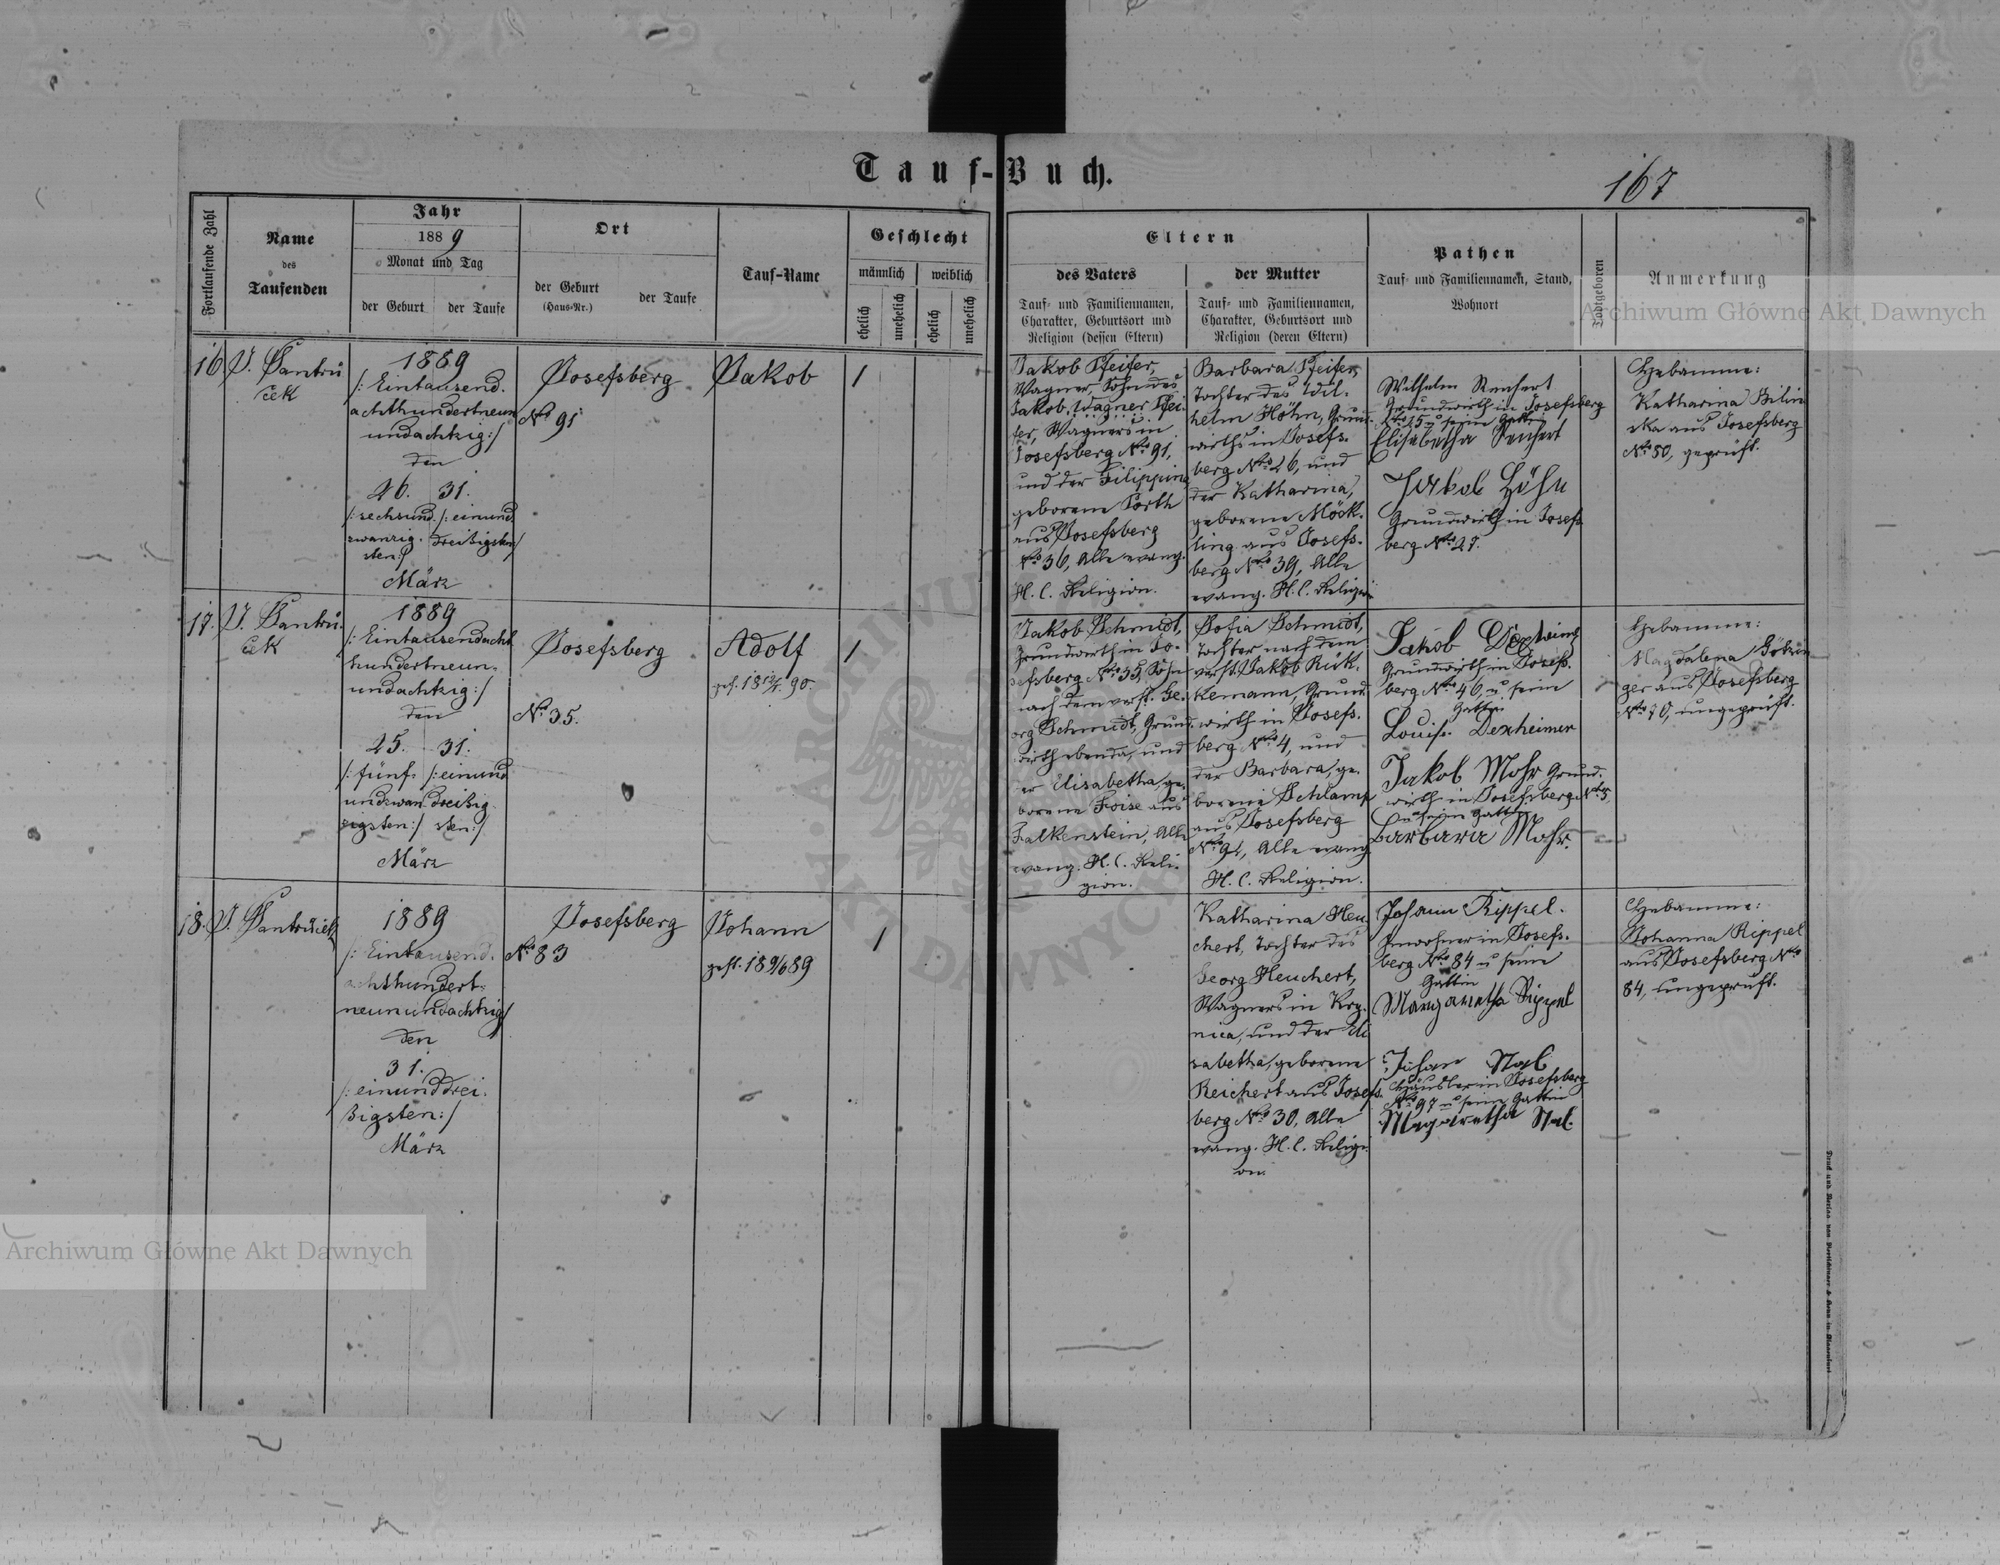 Tauf-Buch.
167
Fortlaufende Zahl
Name
des
Taufenden
Jahr
1889
Monat und Tag
der Geburt
der Taufe
Ort
der Geburt
(Haus-Nr.)
der Taufe
Tauf-Name
Geschlecht
männlich
weiblich
ehelich
unehelich
ehelich
unehelich
Eltern
des Vaters
Tauf- und Familiennamen,
Charakter, Geburtsort und
Religion (dessen Eltern)
der Mutter
Tauf- und Familiennamen,
Charakter, Geburtsort und
Religion (deren Eltern)
Pathen
Tauf- und Familiennamen, Stand,
Wohnort
Todtgeboren
Anmerkung
16
J. Jantru
ček
1889
/: Eintausend.
achthundertneun
undachtzig :/
den
26. 31.
/: sechsund /: einund
zwanzig. dreißigsten/
sten :/
März
Josefsberg
No 91
Jakob
1
Jakob Pfeifer,
Wagner, Sohn des
Jakob, Wagner Pfei-
fer, Wagners in
Josefsberg No 91,
und der Filippina
geborene
aus Josefsberg
No 36, Alle evang.
H. C. Religion.
Barbara Pfeifer,
Tochter des Wil-
helm Höhn, Grund-
wirths in Josefs-
berg No 26, und
der Katharina,
geborene Möck-
ling aus Josefs-
berg No 39, Alle
evang. H. C. Religion
Wilhelm Reichert
Grundwirth in Josefsberg
No 25 u seine Gattin
Elisabetha Reichert
Jakob Höhn
Grundwirth in Josefs
berg No 27.
Hebamme:
Katharina Bilin
ska aus Josefsberg
No 50, geprüft.
17.
J. Jantru-
ček
1889
/: Eintausendacht
hundertneun-
undachtzig :/
den
25. 31.
/: fünf- /: einund
undzwan dreißig-
zigsten :/ sten :/
März
Josefsberg
No 35.
Adolf
90.
1
Jakob Schmidt,
Grundwirth in Jo-
sefsberg No 35, Sohn
nach dem verst. Ge-
org Schmidt, Grund-
wirth ebenda, und
der Elisabetha, ge-
borene aus
Falkenstein, Alle
evang. H. C. Reli-
gion.
Sofia Schmidt,
Tochter nach dem
verst. Jakob Rück-
kemann, Grund-
wirth in Josefs-
berg No 4, und
der Barbara, ge-
borene Schlamp
aus Josefsberg
Alle evang
H. C. Religion.
Jakob Dexheimer
Grundwirth in Josefs-
berg No 46, u seine
Gattin
Louise Dexheimer
Jakob Mohr Grund-
wirth in Josefsberg No 5
u seine Gattin
Barbara Mohr.
Hebamme:
Magdalena
ger aus Josefsberg
No 70, ungeprüft.
18.
J. Jantruček
1889
/: Eintausend.
achthundert-
neunundachtzig/
den
31.
/: einunddrei-
ßigsten :/
März
Josefsberg
No 83
Johann
gest.
1
Katharina Heu
chert, Tochter des
Georg Heuchert,
Wagners in Kry-
nica, und der Eli
sabetha, geborene
Reichert aus Josefs
berg No 30, Alle
evang. H. C. Religi-
on.
Johann Rippel.
Inwohner in Josefs-
berg No 84 u seine
Gattin
Margaretha Rippel
Johan
Häusler in Josefsberg
No 97 u seine Gattin
Magaretha
Hebamme:
Johanna Rippel
aus Josefsberg No
84, ungeprüft.
Archiwum Główne Akt Dawnych
Archiwum Główne Akt Dawnych